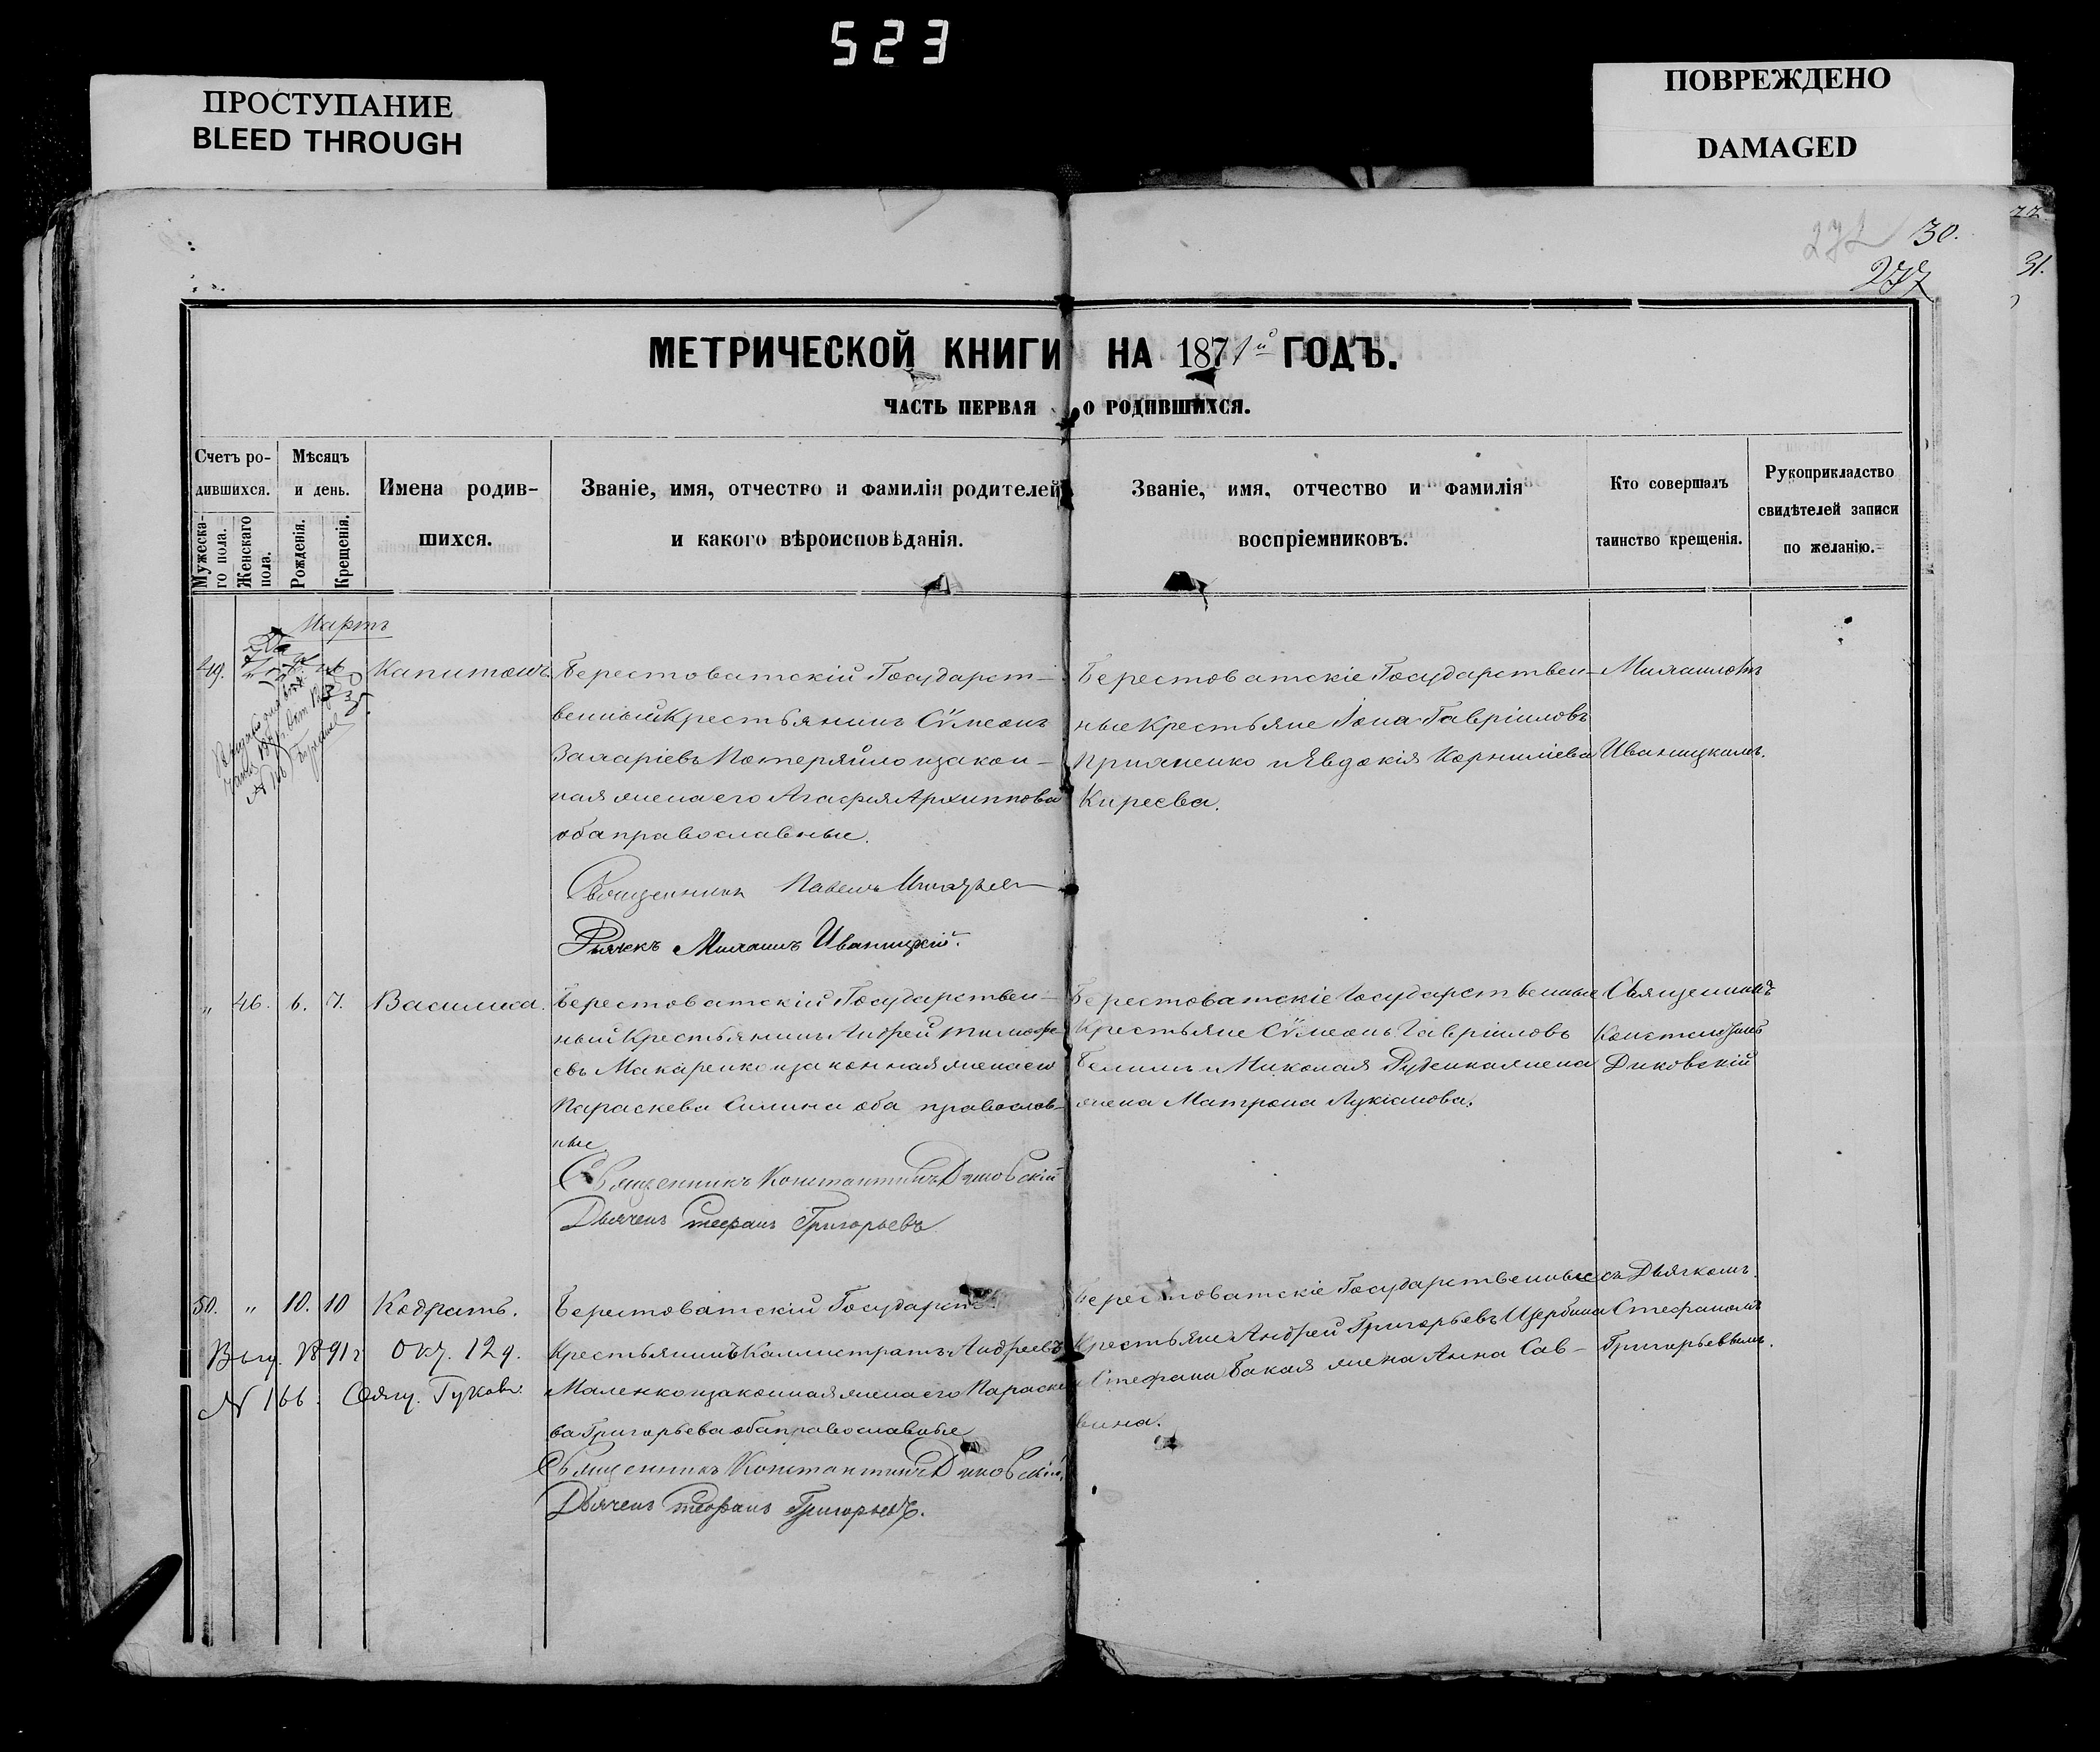 523
ПРОСТУПАНИЕ
BLEED THROUGH
ПОВРЕЖДЕНО
DAMAGED
272 30.
277
31.
МЕТРИЧЕСКОЙ КНИГИ НА 1871й ГОДЪ.
ЧАСТЬ ПЕРВАЯ О РОДИВШИХСЯ.
Счетъ ро-
дившихся.
Мужеска-
го пола.
Женскаго
пола.
Мѣсяцъ
и день.
Рожденія.
Крещенія.
Имена родив-
шихся.
Званіе, имя, отчество и фамилія родителей
и какого вѣроисповѣданія.
Званіе, имя, отчество и фамилія
воспріемниковъ.
Кто совершалъ
таинство крещенія.
Рукоприкладство
свидѣтелей записи
по желанію.
Мартъ
49.
Капитонъ.
Берестоватскій Государст-
венный Крестьянинъ Сѵмеонъ
Захаріевъ Потеряйло и закон-
ная жена его Агафія Архиппова
оба православные.
Священникъ Павелъ
Дьячекъ Михаилъ Иваницкій.
Берестоватскіе Государствен-
ные Крестьяне Іона Гавріиловъ
Прихненко и Явдокія Корниліева
Киреева.
Михаиломъ
Иваницкимъ.
" 46. 6. 7. Василиса.
Берестоватскій Государствен-
ный Крестьянинъ Андрей Тимофе-
евъ Макаренко и законная жена его
Параскева Силина оба православ-
ные
Священникъ Константинъ Диковскій
Дьячекъ Стефанъ Григорьевъ
Берестоватскіе Государственные
Крестьяне Сѵмеонъ Гавріиловъ
и Николая Руденка жена
жена Матрона Лукіанова.
Священникъ
Константинъ
Диковскій
50. " 10. 10 Кодратъ.
Выд. 1891 г Окт. 12 д.
№ 166. Свящ.
Берестоватскій Государств.
Крестьянинъ Каллистратъ Андреевъ
Маленко и законная жена его Параске-
ва Григорьева оба православные
Священникъ Константинъ Диковскій
Дьячекъ Стефанъ Григорьевъ.
Берестоватскіе Государственные
Крестьяне Андрей Григорьевъ Щербина
и Стефана Бакая жена Анна Сав-
вина.
съ Дьячкомъ
Стефаномъ
Григорьевымъ.